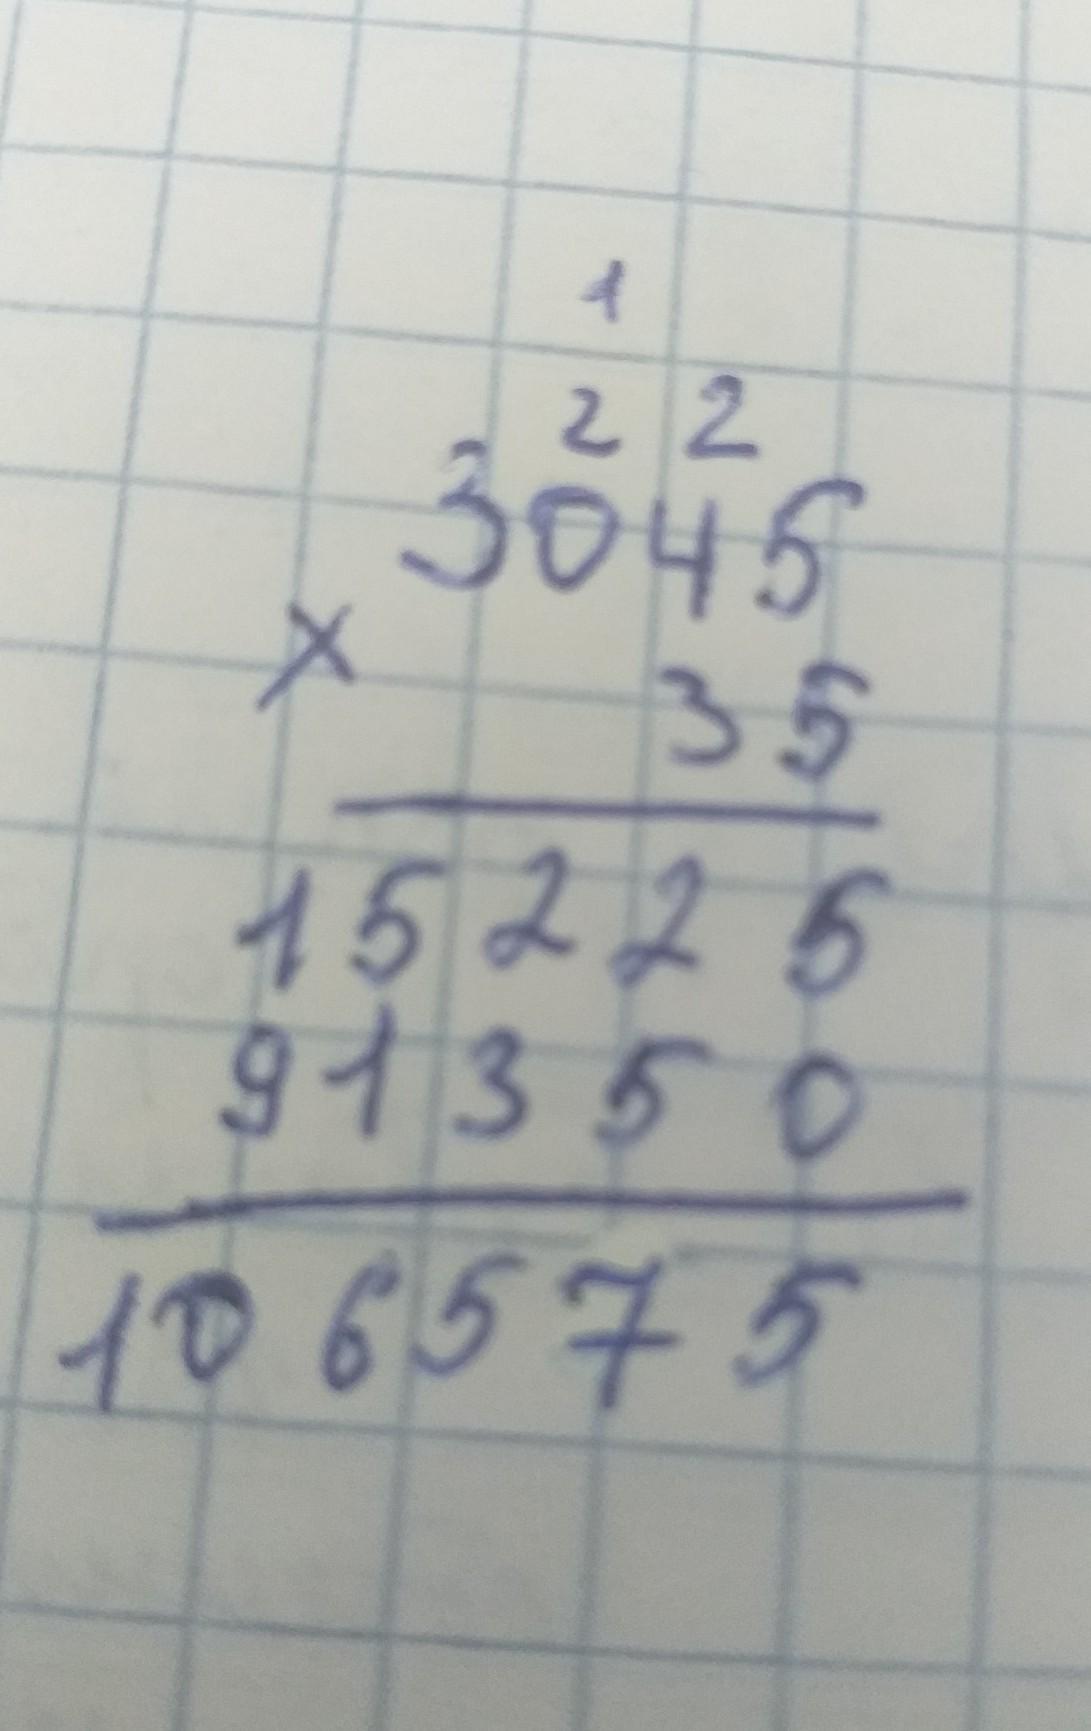 1
2 2
3045
x
35
15225
91350
106575